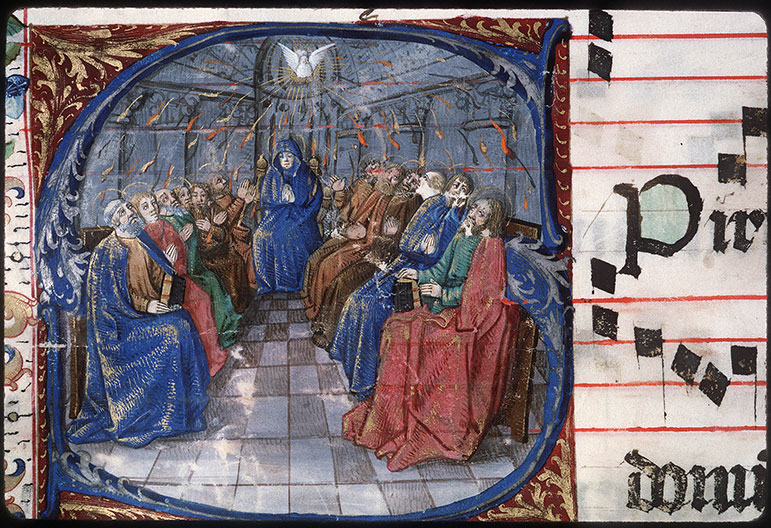 SPir
domi